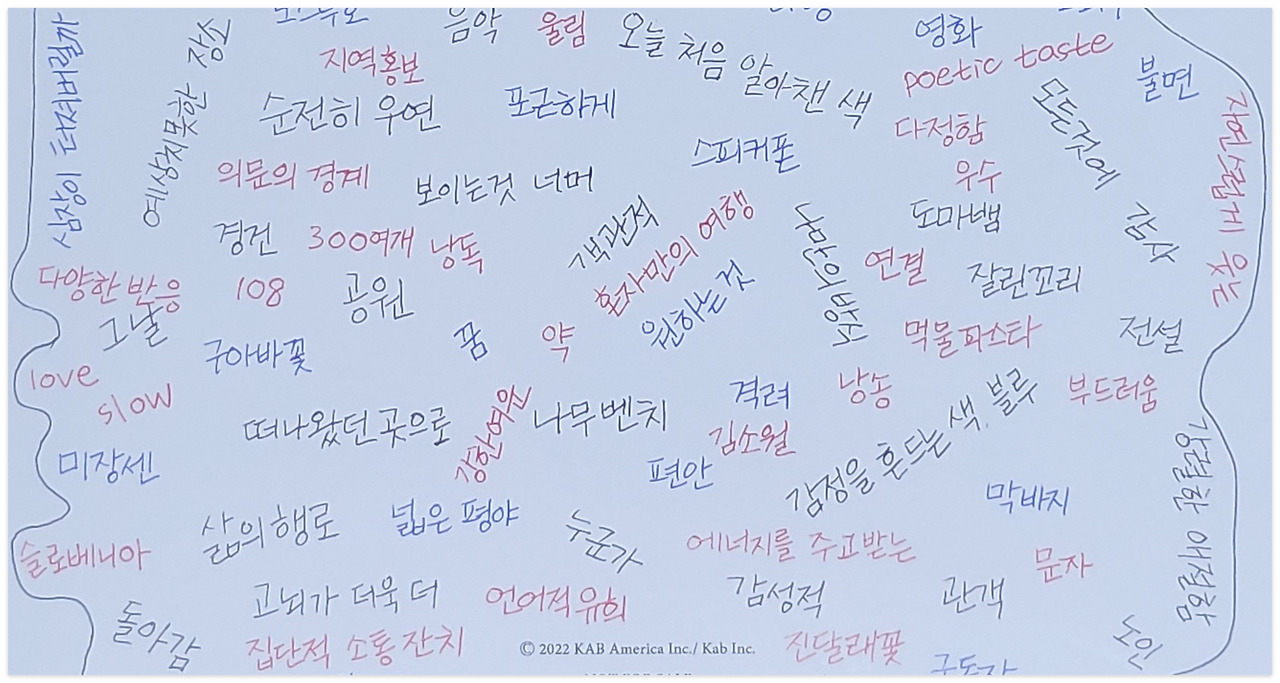 심장이 타져버릴까
예상치못한 장소
음악
울림
오늘 처음 알아챈 색
영화
poetic taste
불면
지역홍보
순전히 우연
포근하게
스피커폰
다정함
모든것에 감사
자연스럽게 웃는
의문의 경계
보이는것 너머
우수
경건
300여개
낭독
객관적
혼자만의 여행
도마뱀
눈만의방스
연결
잘린꼬리
다양한 반응
108
공원
그날
원하는 것
구아바꽃
꿈
약
먹물파스타
전설
love
slow
떠나왔던 곳으로
강한여운
나무벤치
격려
낭송
부드러움
김소월
감정을 흔드는 색. 블루
미장센
편안
강렬한 애절함
막바지
삶의행로
넓은 평야
누군가
에너지를 주고받는
슬로베니아
문자
고뇌가 더욱 더
언어적유희
감성적
관객
돌아감
집단적 소통 잔치
© 2022 KAB America Inc./ Kab Inc.
진달래꽃
노인
구독자